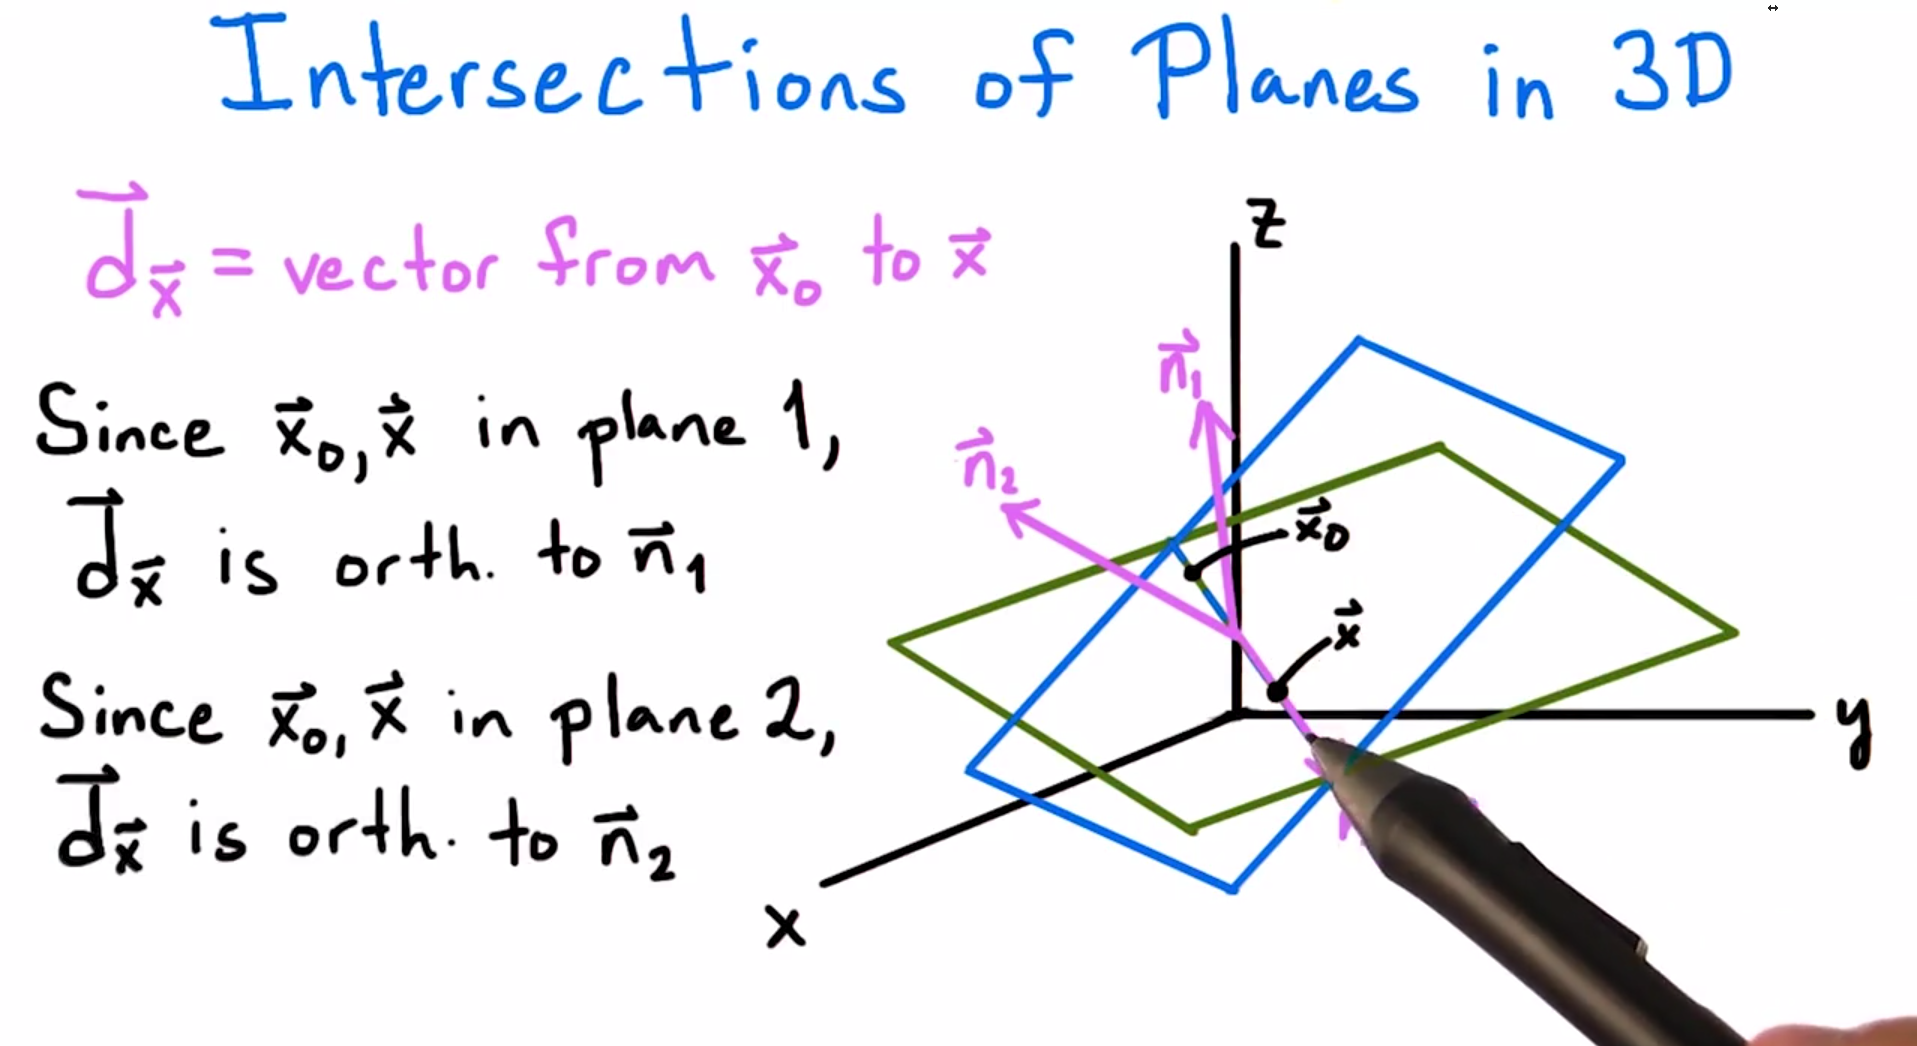 Intersections of Planes in 3D
d⃗ₓ⃗ = vector from x⃗₀ to x⃗
Since x⃗₀, x⃗ in plane 1,
d⃗ₓ⃗ is orth. to n⃗₁
Since x⃗₀, x⃗ in plane 2,
d⃗ₓ⃗ is orth. to n⃗₂
z
n⃗₁
n⃗₂
x⃗₀
x⃗
y
x